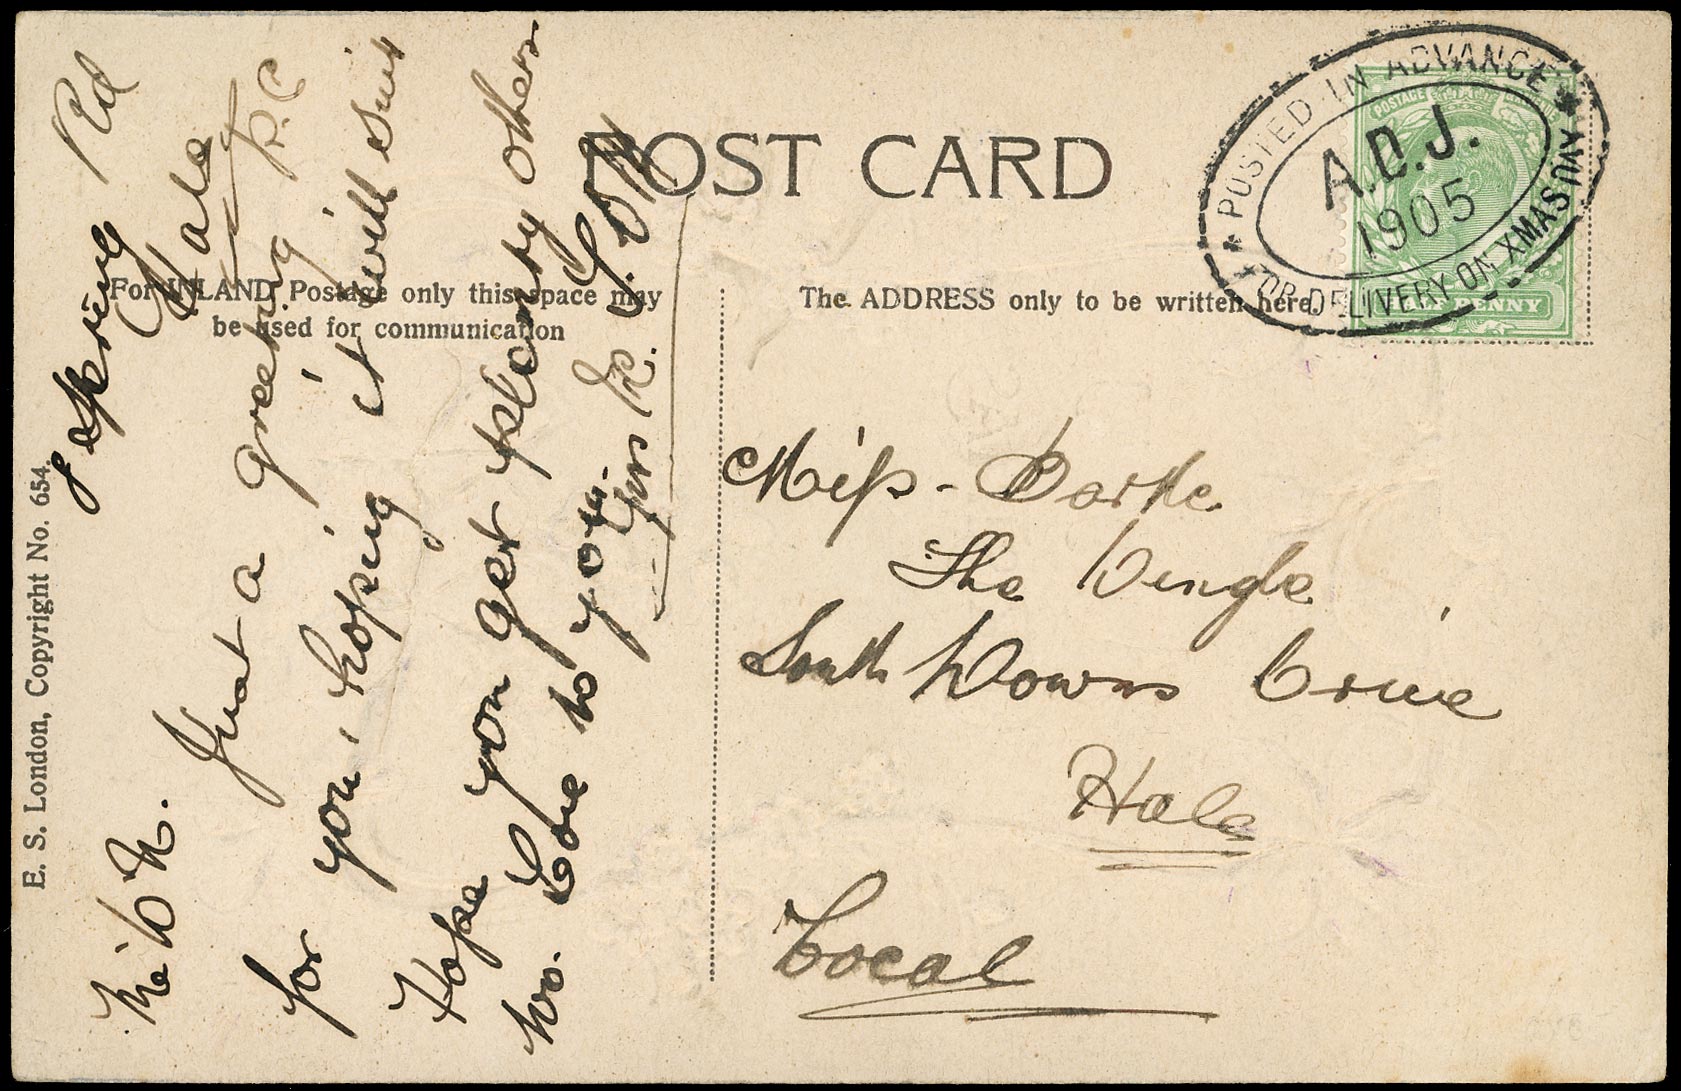 POST CARD
For INLAND Postage only this space may
be used for communication
The ADDRESS only to be written here.
E. S. London, Copyright No. 654.
POSTED IN ADVANCE
FOR DELIVERY ON XMAS DAY
A.D.J.
1905
POSTAGE
HALF PENNY
Rd
Hale
Just a greeting P.C
for you, hoping it will suit
Hope you get plenty others
Love to you.
Miss Darke
The Dingle
South Downs Drive
Hale
Local